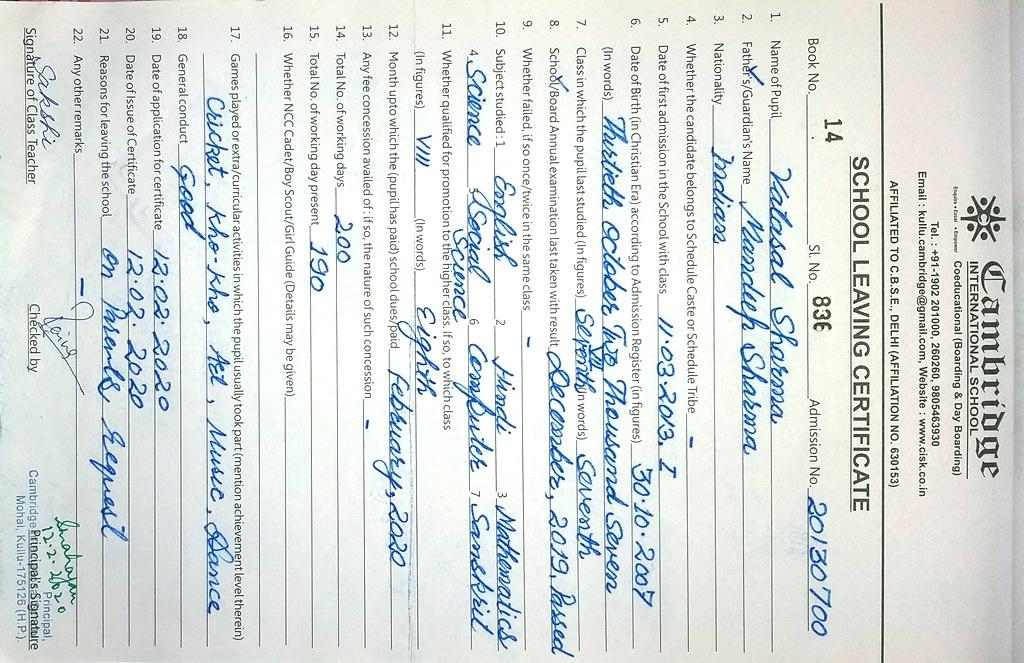 Cambridge
INTERNATIONAL SCHOOL
Enquire • Excel • Empower
Coeducational (Boarding & Day Boarding)
Tel. : +91-1902 201000, 260260, 9805463930
Email : kullu.cambridge@gmail.com, Website : www.cisk.co.in
AFFILIATED TO C.B.S.E., DELHI (AFFILIATION NO. 630153)
SCHOOL LEAVING CERTIFICATE
Book No. 14 Sl. No. 836 Admission No. 20130700
1. Name of Pupil Vatasal Sharma
2. Father's/Guardian's Name Mandeep Sharma
3. Nationality Indian
4. Whether the candidate belongs to Schedule Caste or Schedule Tribe -
5. Date of first admission in the School with class 11.03.2013 I
6. Date of Birth (in Christian Era) according to Admission Register (in figures) 30.10.2007
(In words) Thirtieth October Two Thousand Seven
7. Class in which the pupil last studied (In figures) VII Seventh (In words) Seventh
8. School/Board Annual examination last taken with result December, 2019, Passed
9. Whether failed, if so once/twice in the same class -
10. Subject studied : 1 English 2 Hindi 3 Mathematics
4 Science 5 Social Science 6 Computer 7 Sanskrit
11. Whether qualified for promotion to the higher class. If so, to which class
(In figures) VIII (In words) Eighth
12. Month upto which the (pupil has paid) school dues/paid February, 2020
13. Any fee concession availed of : if so, the nature of such concession -
14. Total No. of working days 200
15. Total No. of working day present 190
16. Whether NCC Cadet/Boy Scout/Girl Guide (Details may be given)
17. Games played or extra/curricular activities in which the pupil usually took part (mention achievement level therein)
Cricket, Kho-Kho, Art, Music, Dance
18. General conduct Good
19. Date of application for certificate 12.02.2020
20. Date of Issue of Certificate 12.02.2020
21. Reasons for leaving the school On Parents Request
22. Any other remarks -
Sakshi
12.2.2020
Signature of Class Teacher Checked by Principal's Signature
Principal,
Cambridge
Mohal, Kullu-175126 (H.P.)